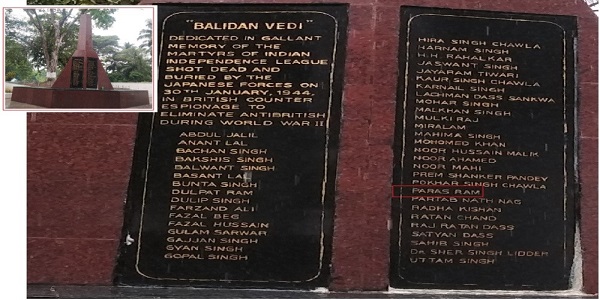 "BALIDAN VEDI"
DEDICATED IN GALLANT
MEMORY OF THE
MARTYRS OF INDIAN
INDEPENDENCE LEAGUE
SHOT DEAD AND
BURIED BY THE
JAPANESE FORCES ON
30TH JANUARY, 1944,
IN BRITISH COUNTER
ESPIONAGE TO
ELIMINATE ANTIBRITISH
DURING WORLD WAR II
ABDUL JALIL
ANANT LAL
BACHAN SINGH
BAKSHIS SINGH
BALWANT SINGH
BASANT LAL
BUNTA SINGH
DULPAT RAM
DULIP SINGH
FARZAND ALI
FAZAL BEG
FAZAL HUSSAIN
GULAM SARWAR
GAJJAN SINGH
GYAN SINGH
GOPAL SINGH
HIRA SINGH CHAWLA
HARNAM SINGH
H.H. RAHALKAR
JASWANT SINGH
JAYARAM TIWARI
KAUR SINGH CHAWLA
KARNAIL SINGH
LACHMAN DASS SANKWA
MOHAR SINGH
MALKHAN SINGH
MULKI RAJ
MIRALAM
MAHIMA SINGH
MOHOMED KHAN
NOOR HUSSAIN MALIK
NOOR AHAMED
NOOR MAHI
PREM SHANKER PANDEY
POKHAR SINGH CHAWLA
PARAS RAM
PARTAB NATH NAG
RADHA KISHAN
RATAN CHAND
RAJ RATAN DASS
SATYAN DASS
SAHIB SINGH
Dr SHER SINGH LIDDER
UTTAM SINGH